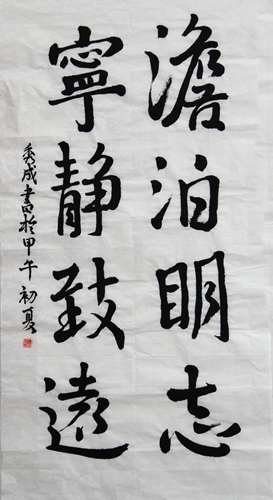 澹泊明志
寧静致遠
秀成書於甲午初夏